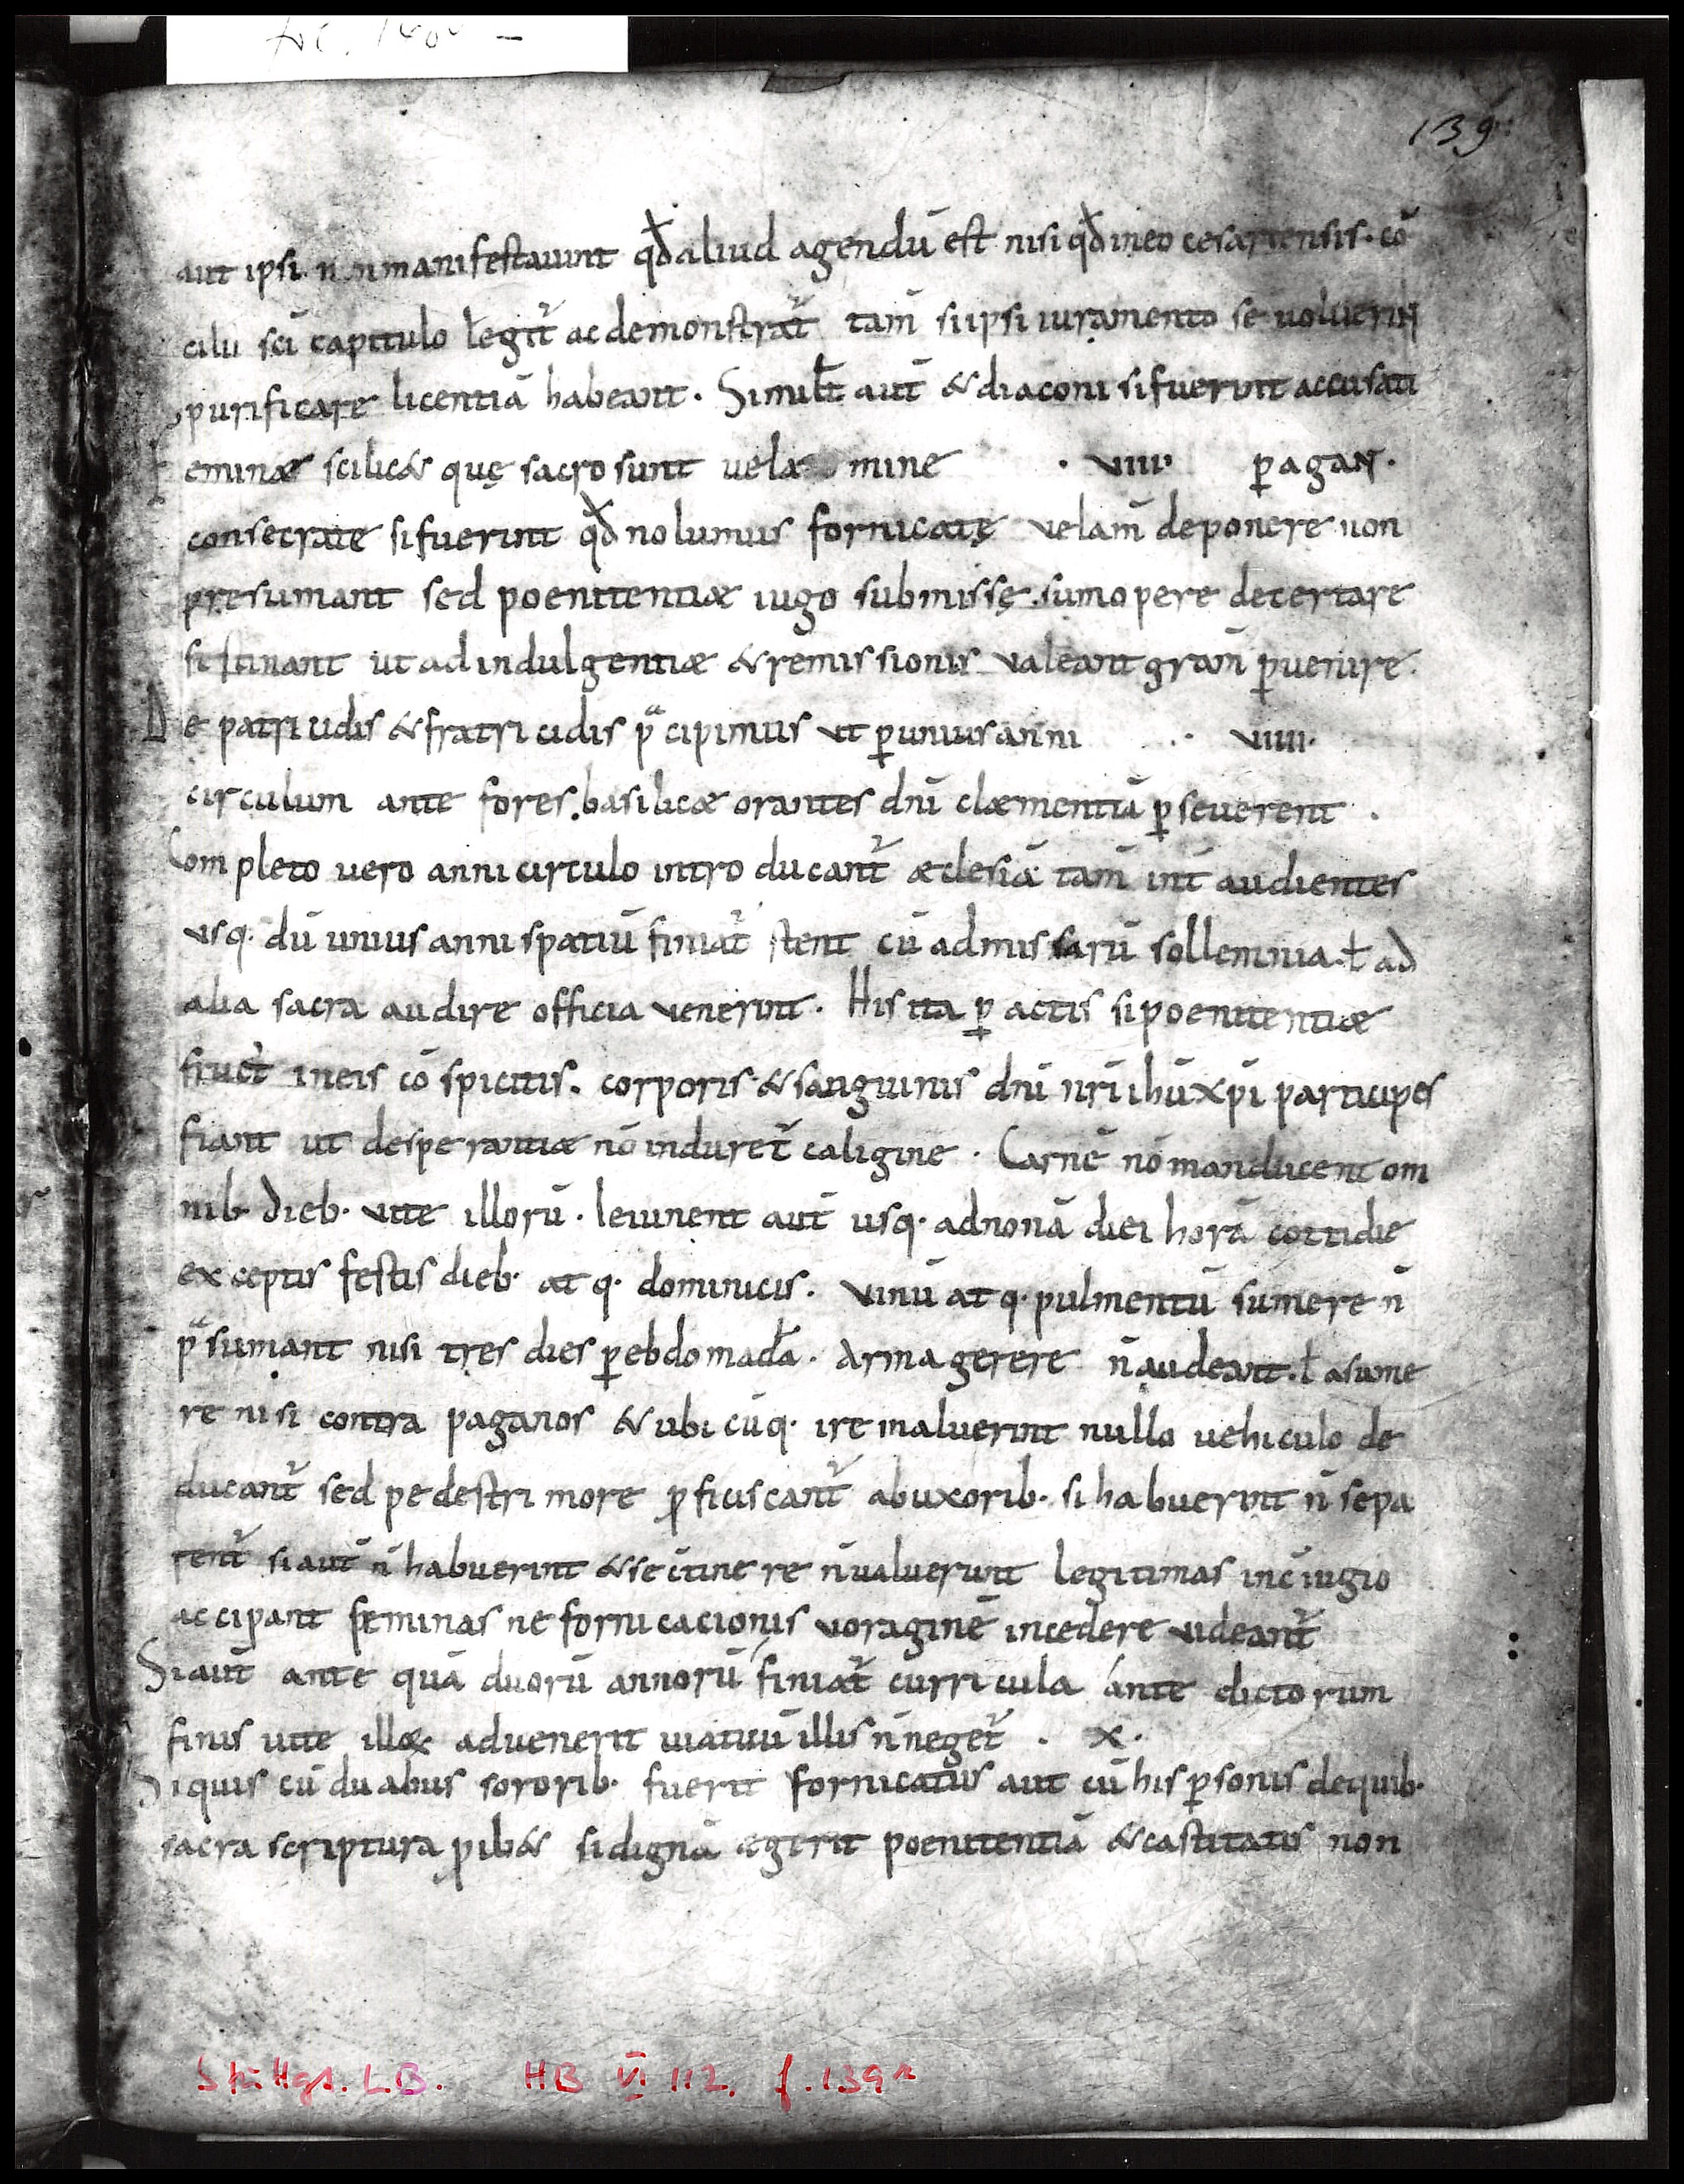 139
aut ipsi non manifestauunt qđ aliud agendū est nisi qđ in eo cesariensis · cō
cilii sci capitulo legit̃ ac demonstrat̃ tam̄ si ipsi iuramento se uoluerint
purificare licentiā habeant · Simil̄t aut̄ & diaconi si fuerint accusati
Feminæ scilic& quę sacro sunt uelamine · VIIII · p̱ agaN ·
consecrate si fuerint qđ nolumus fornicatę velam̄ deponere non
presumant sed poenitentiæ iugo submissę sumopere decertare
festinant ut ad indulgentiæ & remissionis valeant gram̄ p̱uenire ·
De patricidis & fratricidis p̄cipimus ut p̱ unius anni · VIIII ·
circulum ante fores basilicæ orantes dn̄i clæmentiā p̱seuerent ·
Completo vero anni circulo introducant̃ æclesiā tam̄ int̄ audientes
usq · dū unius anni spatiū finiat̃ stent cū ad missarū sollemnia ł ad
alia sacra audire officia venerint · His ita p̱actis si poenitentiæ
fruct̄ in eis cōspicitis · corporis & sanguinis dn̄i nr̄i ihū xp̄i participes
fiant ut desperantiæ nō induret̃ caligine · Carnē nō manducent om
nib · dieb · vite illorū · Ieiunent aut̄ usq · ad nonā diei horā cottidie
exceptis festis dieb · atq · dominicis · Vinū atq · pulmentū sumere n̄
p̄sumant nisi tres dies p̱ ebdomada · Arma gerere n̄ audeant · ł asume
re nisi contra paganos & ubicūq · ire maluerint nullo uehiculo de
ducant̃ sed pedestri more p̱ficiscant̃ ab uxorib · si habuerint n̄ sepa
rent̃ si aut̄ n̄ habuerint & se c̄tinere n̄ ualuerint legitimas in c̄iugio
accipant feminas ne fornicacionis uoraginē incedere uideant̃
Si aut̄ ante quā duorū annorū finiat̃ curricula ante dictorum
finis uite illoꝝ aduenerit uiaticū illis n̄ neget̃ · X ·
Si quis cū duabus sororib · fuerit fornicatus aut cū his p̱sonis de quib ·
sacra scriptura p̱hib& si dignā egerit poenitentiā & castitatis non
Stuttgt. L.B. HB VI 112. f. 139r